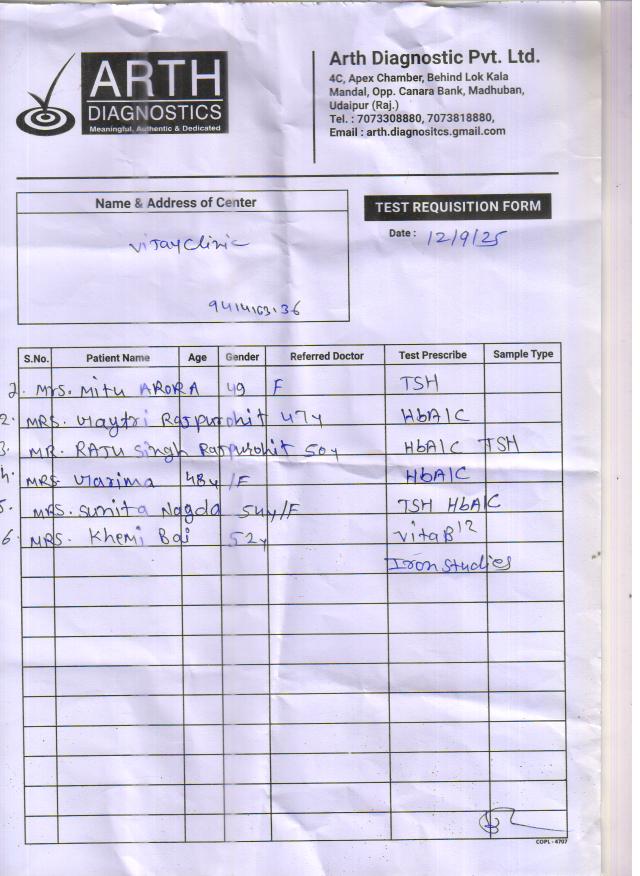 ARTH
DIAGNOSTICS
Meaningful, Authentic & Dedicated
Arth Diagnostic Pvt. Ltd.
4C, Apex Chamber, Behind Lok Kala
Mandal, Opp. Canara Bank, Madhuban,
Udaipur (Raj.)
Tel. : 7073308880, 7073818880,
Email : arth.diagnositcs.gmail.com
Name & Address of Center
TEST REQUISITION FORM
Vijay Clinic
Date : 12/9/25
S.No. Patient Name Age Gender Referred Doctor Test Prescribe Sample Type
Mrs. Mitu ARORA 49 F TSH
2. MRS. Rajpurohit 47y HbA1C
3. MR. RAJU Singh Rajpurohit 50y HbA1C TSH
4. MRS. 48y /F HbA1C
5. MRS. Sunita Nagda 54y/F TSH HbA1C
6. MRS. Khemi Bai 52y Vita B12
Iron Studies
COPL - 4707